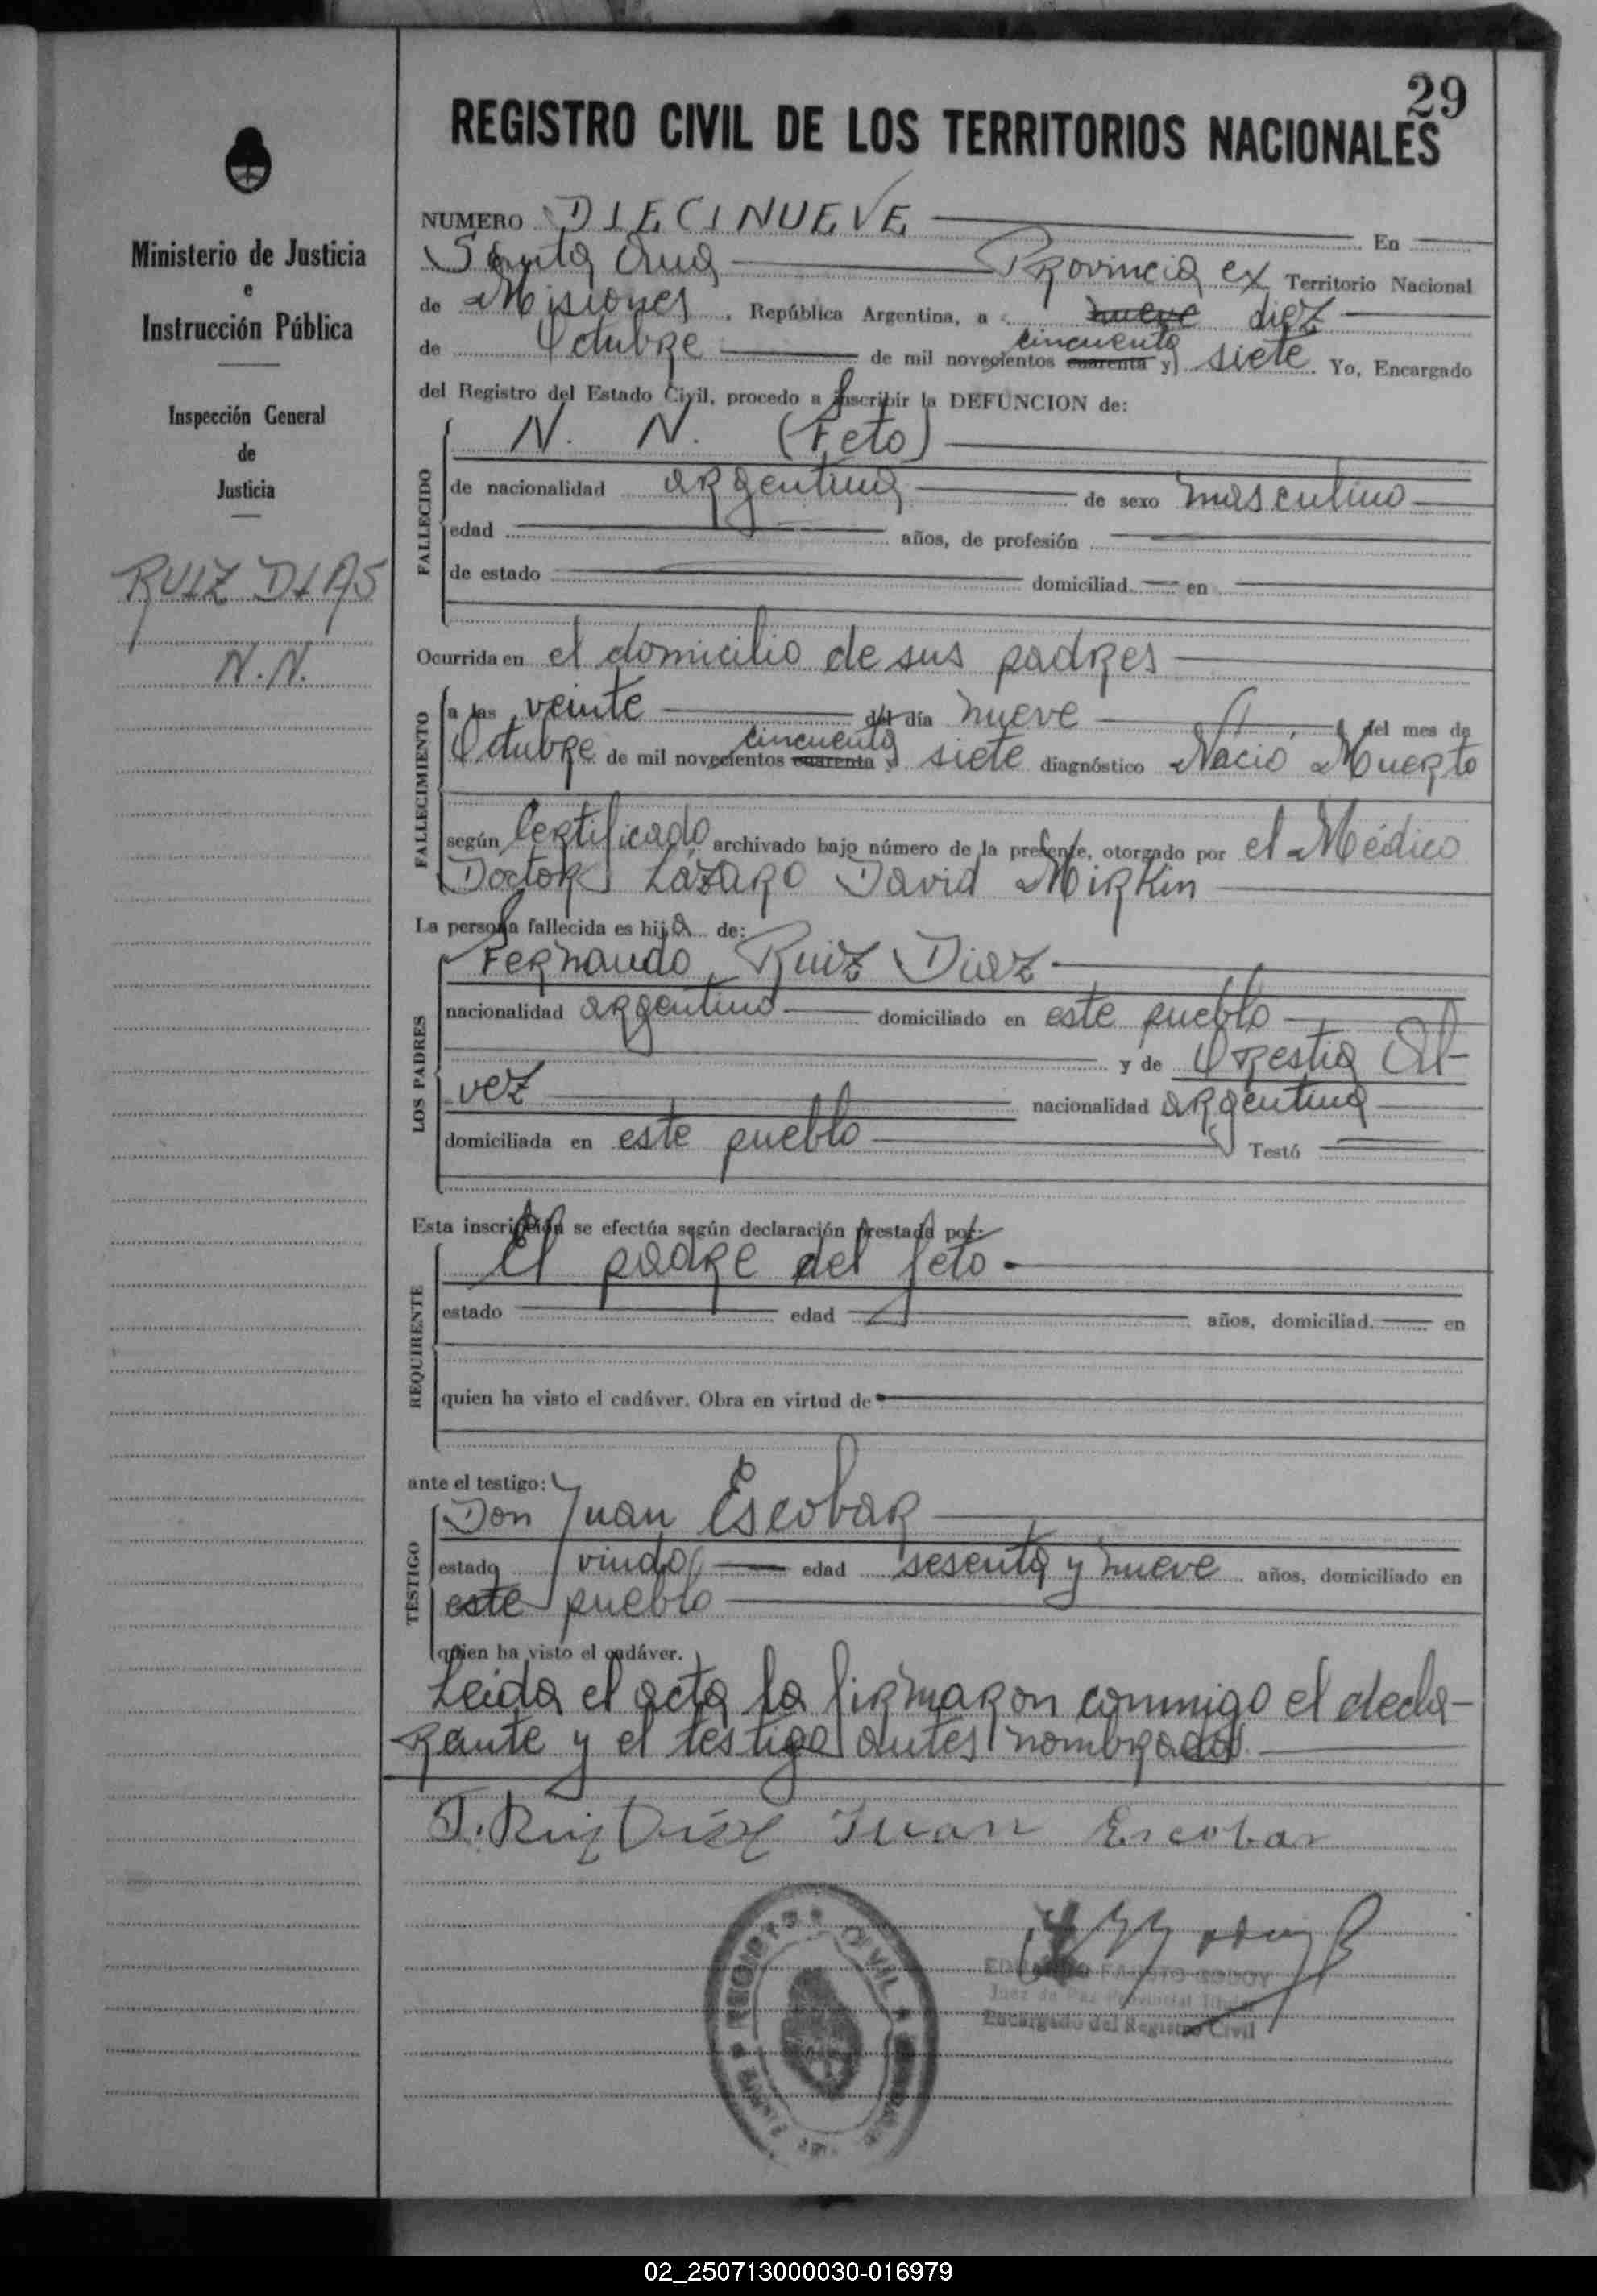 29
REGISTRO CIVIL DE LOS TERRITORIOS NACIONALES
Ministerio de Justicia
e
Instrucción Pública
Inspección General
de
Justicia
RUIZ DIAS
N.N.
NUMERO DIECINUEVE En
Santa Ana Provincia ex Territorio Nacional
de Misiones, República Argentina, a nueve diez
cincuenta
de Octubre de mil novecientos cuarenta y siete. Yo, Encargado
del Registro del Estado Civil, procedo a inscribir la DEFUNCION de:
FALLECIDO
N. N. (Feto)
de nacionalidad argentina de sexo masculino
edad años, de profesión
de estado domiciliad en
Ocurrida en el domicilio de sus padres
FALLECIMIENTO
a las veinte del día nueve del mes de
cincuenta
Octubre de mil novecientos cuarenta y siete diagnóstico Nació Muerto
según Certificado archivado bajo número de la presente, otorgado por el Médico
Doctor Lázaro David Mirkin
La persona fallecida es hijo de:
LOS PADRES
Fernando Ruiz Diaz
nacionalidad argentino domiciliado en este pueblo
y de Orestia Al-
vez nacionalidad argentina
domiciliada en este pueblo Testó
Esta inscripción se efectúa según declaración prestada por:
REQUIRENTE
El padre del feto.
estado edad años, domiciliad en
quien ha visto el cadáver. Obra en virtud de
ante el testigo:
TESTIGO
Don Juan Escobar
estado viudo edad sesenta y nueve años, domiciliado en
este pueblo
quien ha visto el cadáver.
Leida el acta la firmaron conmigo el decla-
rante y el testigo antes nombrado.
F. Ruiz Diaz Juan Escobar
REGISTRO CIVIL
EDUARDO FAUSTO GODOY
Juez de Paz Provincial Titular
Encargado del Registro Civil
02_250713000030-016979